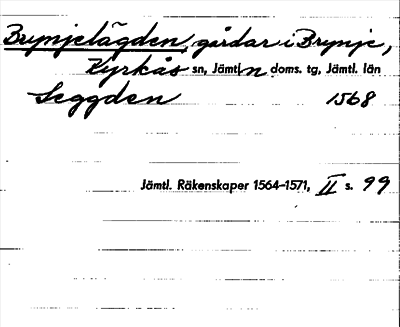 Brynjelägden, gårdar i Brynje,
Kyrkås sn, Jämtl. n. doms. tg, Jämtl. län
Leggden 1568
Jämtl. Räkenskaper 1564–1571, II s. 99